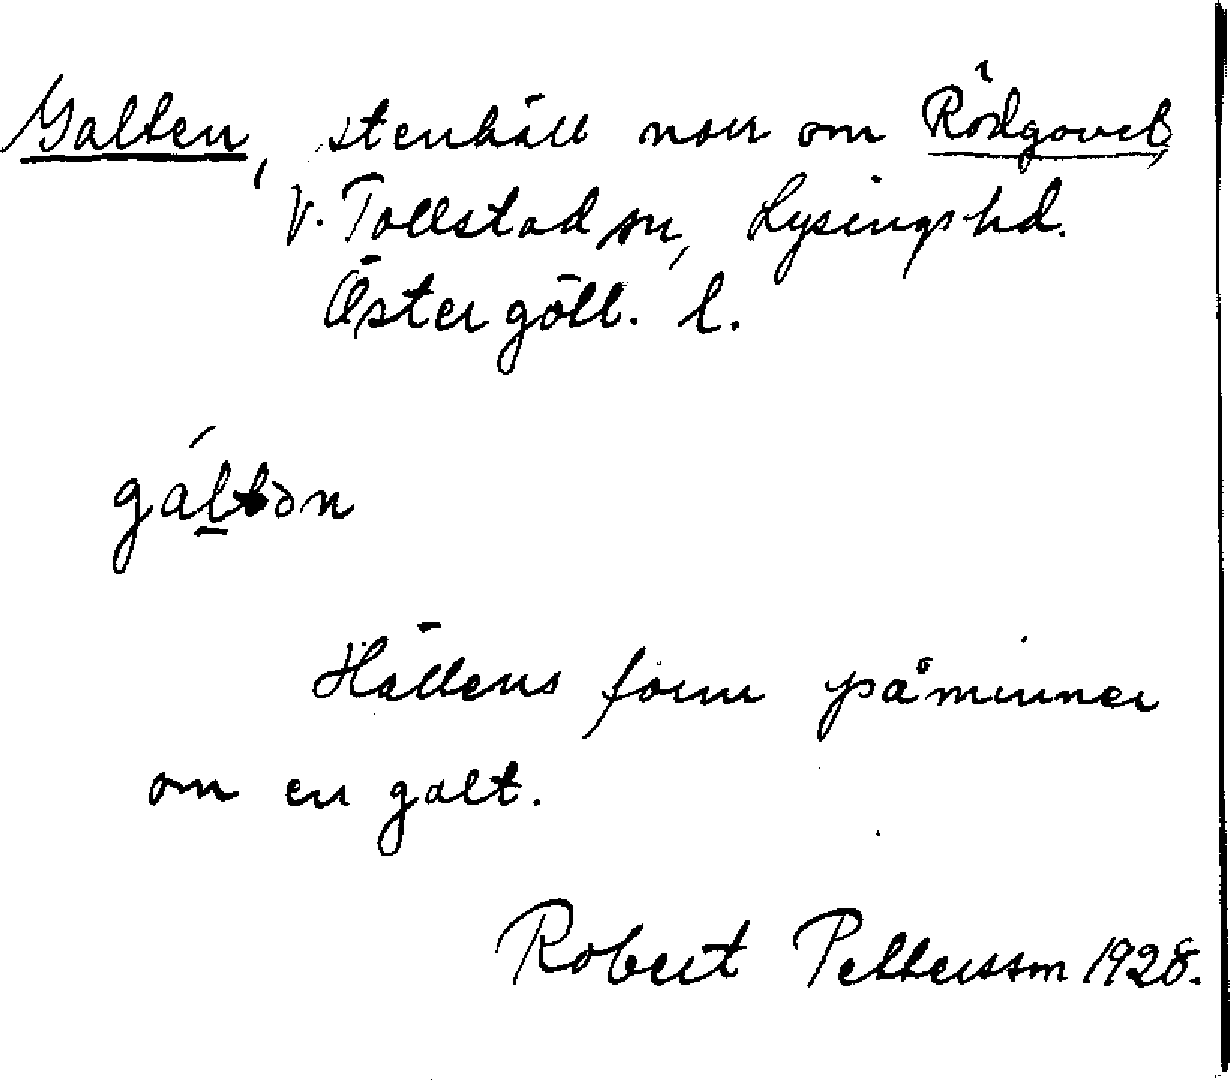 Galten, stenhäll norr om Rödgavel,
V. Tollstad sn, Lysings hd.
Östergötl. l.
gáltən
Hällens form påminner
om en galt.
Robert Pettersson 1928.